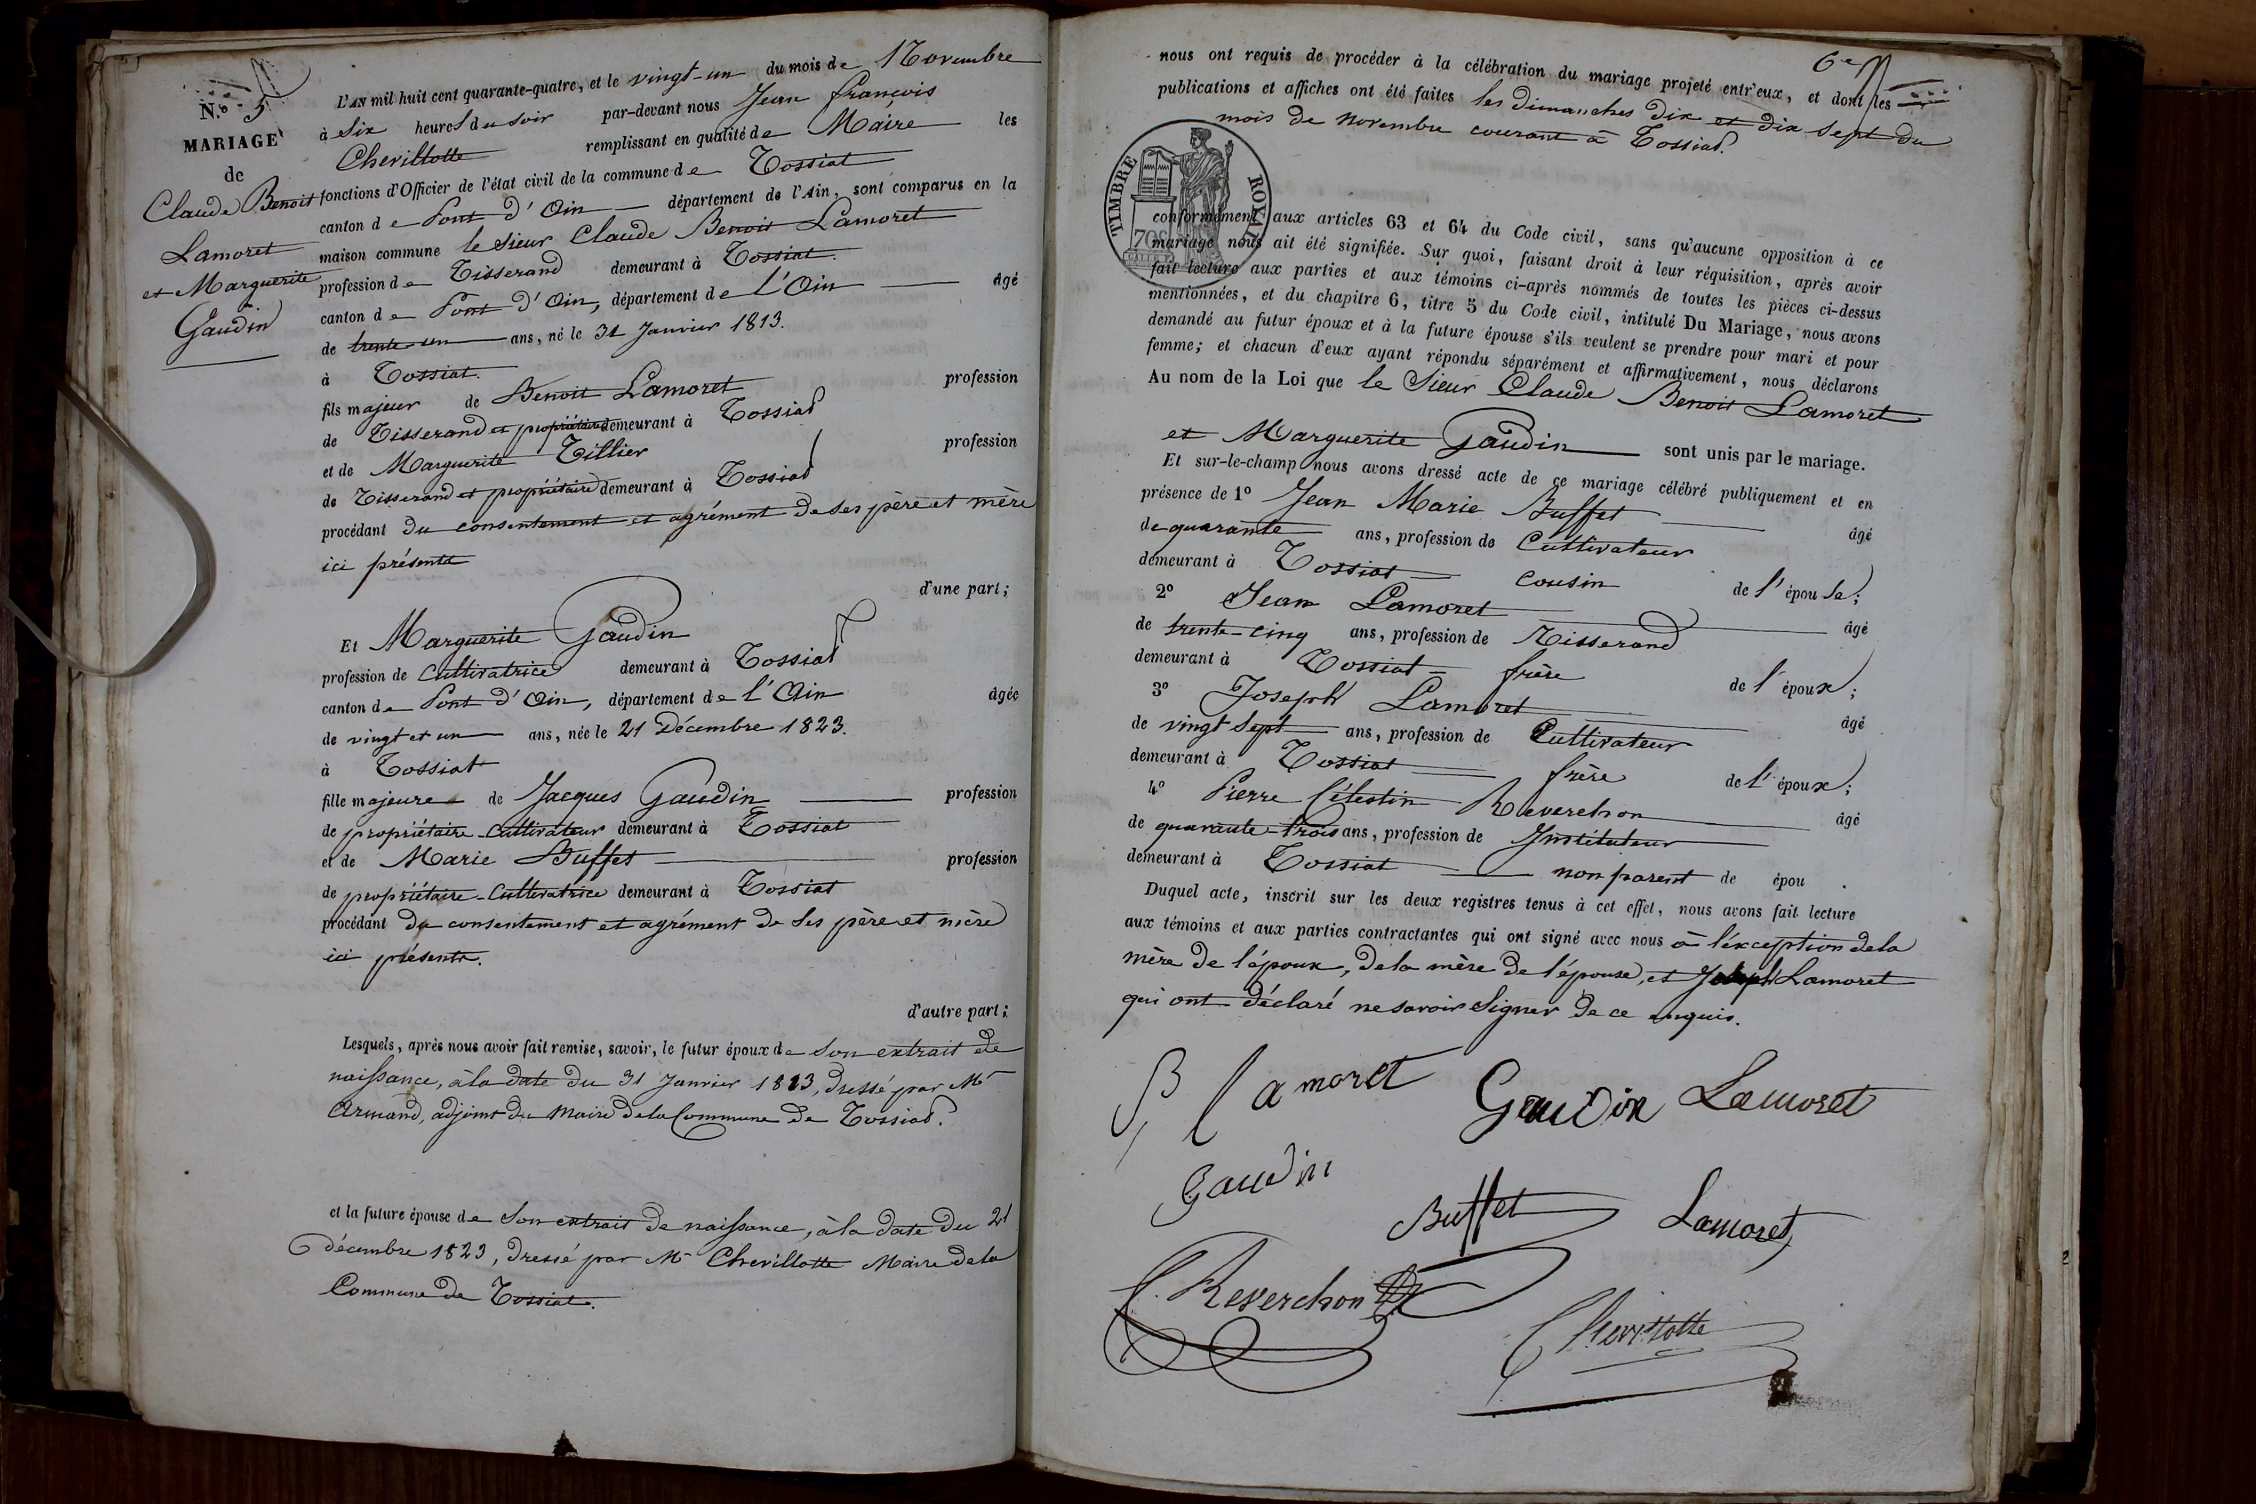 N.º 5
MARIAGE
de
Claude Benoit
Lamoret
et Marguerite
Gaudin
L'AN mil huit cent quarante-quatre, et le vingt-un du mois de Novembre
à Six heures du soir par-devant nous Jean François
Chevillotte remplissant en qualité de Maire les
fonctions d'Officier de l'état civil de la commune de Tossiat
canton de Pont d'Ain département de l'Ain, sont comparus en la
maison commune le Sieur Claude Benoit Lamoret
profession de Tisserand demeurant à Tossiat.
canton de Pont d'Ain, département de l'Ain âgé
de trente-un ans, né le 31 Janvier 1813.
à Tossiat.
fils majeur de Benoit Lamoret profession
de Tisserand et propriétaire demeurant à Tossiat
et de Marguerite Tillier profession
de Tisserand et propriétaire demeurant à Tossiat
procédant du consentement et agrément de ses père et mère
ici présents
d'une part;
Et Marguerite Gaudin
profession de Cultivatrice demeurant à Tossiat
canton de Pont d'Ain, département de l'Ain âgée
de vingt et un ans, née le 21 Décembre 1823.
à Tossiat
fille majeure de Jacques Gaudin profession
de propriétaire-Cultivateur demeurant à Tossiat
et de Marie Buffet profession
de propriétaire-Cultivatrice demeurant à Tossiat
procédant du consentement et agrément de ses père et mère
ici présents.
d'autre part;
Lesquels, après nous avoir fait remise, savoir, le futur époux de Son extrait de
naissance, à la date du 31 Janvier 1813, dressé par Mr
Armand, adjoint du Maire de la Commune de Tossiat.
et la future épouse de Son extrait de naissance, à la date du 21
décembre 1823, dressé par Mr Chevillotte Maire de la
Commune de Tossiat.
6e
nous ont requis de procéder à la célébration du mariage projeté entr'eux, et dont les
publications et affiches ont été faites les dimanches dix et dix sept du
mois de novembre courant à Tossiat.
TIMBRE ROYAL
70c
conformément aux articles 63 et 64 du Code civil, sans qu'aucune opposition à ce
mariage nous ait été signifiée. Sur quoi, faisant droit à leur réquisition, après avoir
fait lecture aux parties et aux témoins ci-après nommés de toutes les pièces ci-dessus
mentionnées, et du chapitre 6, titre 5 du Code civil, intitulé Du Mariage, nous avons
demandé au futur époux et à la future épouse s'ils veulent se prendre pour mari et pour
femme; et chacun d'eux ayant répondu séparément et affirmativement, nous déclarons
Au nom de la Loi que le Sieur Claude Benoit Lamoret
et Marguerite Gaudin sont unis par le mariage.
Et sur-le-champ nous avons dressé acte de ce mariage célébré publiquement et en
présence de 1º Jean Marie Buffet âgé
de quarante ans, profession de Cultivateur
demeurant à Tossiat cousin de l'épouse;
2º Jean Lamoret âgé
de trente-cinq ans, profession de Tisserand
demeurant à Tossiat frère de l'époux;
3º Joseph Lamoret âgé
de vingt sept ans, profession de Cultivateur
demeurant à Tossiat frère de l'époux;
4º Pierre Célestin Reverchon âgé
de quarante-trois ans, profession de Instituteur
demeurant à Tossiat non parent de épou .
Duquel acte, inscrit sur les deux registres tenus à cet effet, nous avons fait lecture
aux témoins et aux parties contractantes qui ont signé avec nous à l'éxception de la
mère de l'époux, de la mère de l'épouse, et Joseph Lamoret
qui ont déclaré ne savoir Signer de ce enquis.
B Lamoret Gaudin Lamoret
Gaudin Buffet Lamoret
C. Reverchon Chevillotte